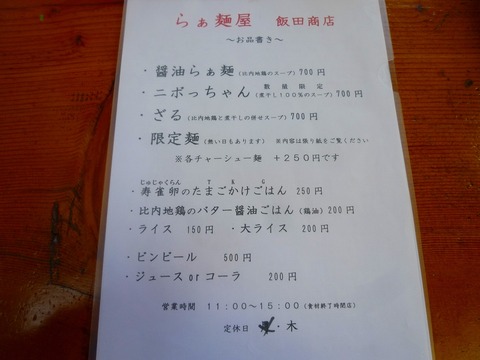 らぁ麺屋 飯田商店
～お品書き～
・醤油らぁ麺(比内地鶏のスープ)700円
数量限定
・ニボっちゃん(煮干し100%のスープ)700円
・ざる(比内地鶏と煮干しの併せスープ)700円
・限定麺(無い日もあります) ※内容は張り紙をご覧ください
※各チャーシュー麺 +250円です
じゅじゃくらん TKG
・寿雀卵のたまごかけごはん 250円
・比内地鶏のバター醤油ごはん(鶏油)200円
・ライス 150円 ・大ライス 200円
・ビンビール 500円
・ジュースorコーラ 200円
営業時間 11:00～15:00(食材終了時閉店)
定休日 ・木